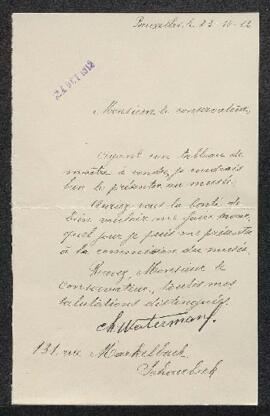 Bruxelles, le 23-10-12
24 OCT 1912
Monsieur le conservateur,
Ayant un tableau de
maître à vendre, je voudrais
bien le présenter au musée.
Auriez vous la bonté de
bien vouloir me faire savoir
quel jour je puis me présenter
à la commission du musée.
Recevez, Monsieur le
conservateur, toutes mes
salutations distinguées.
Ch. Watermans.
131, rue Markelbach
Schaerbeek